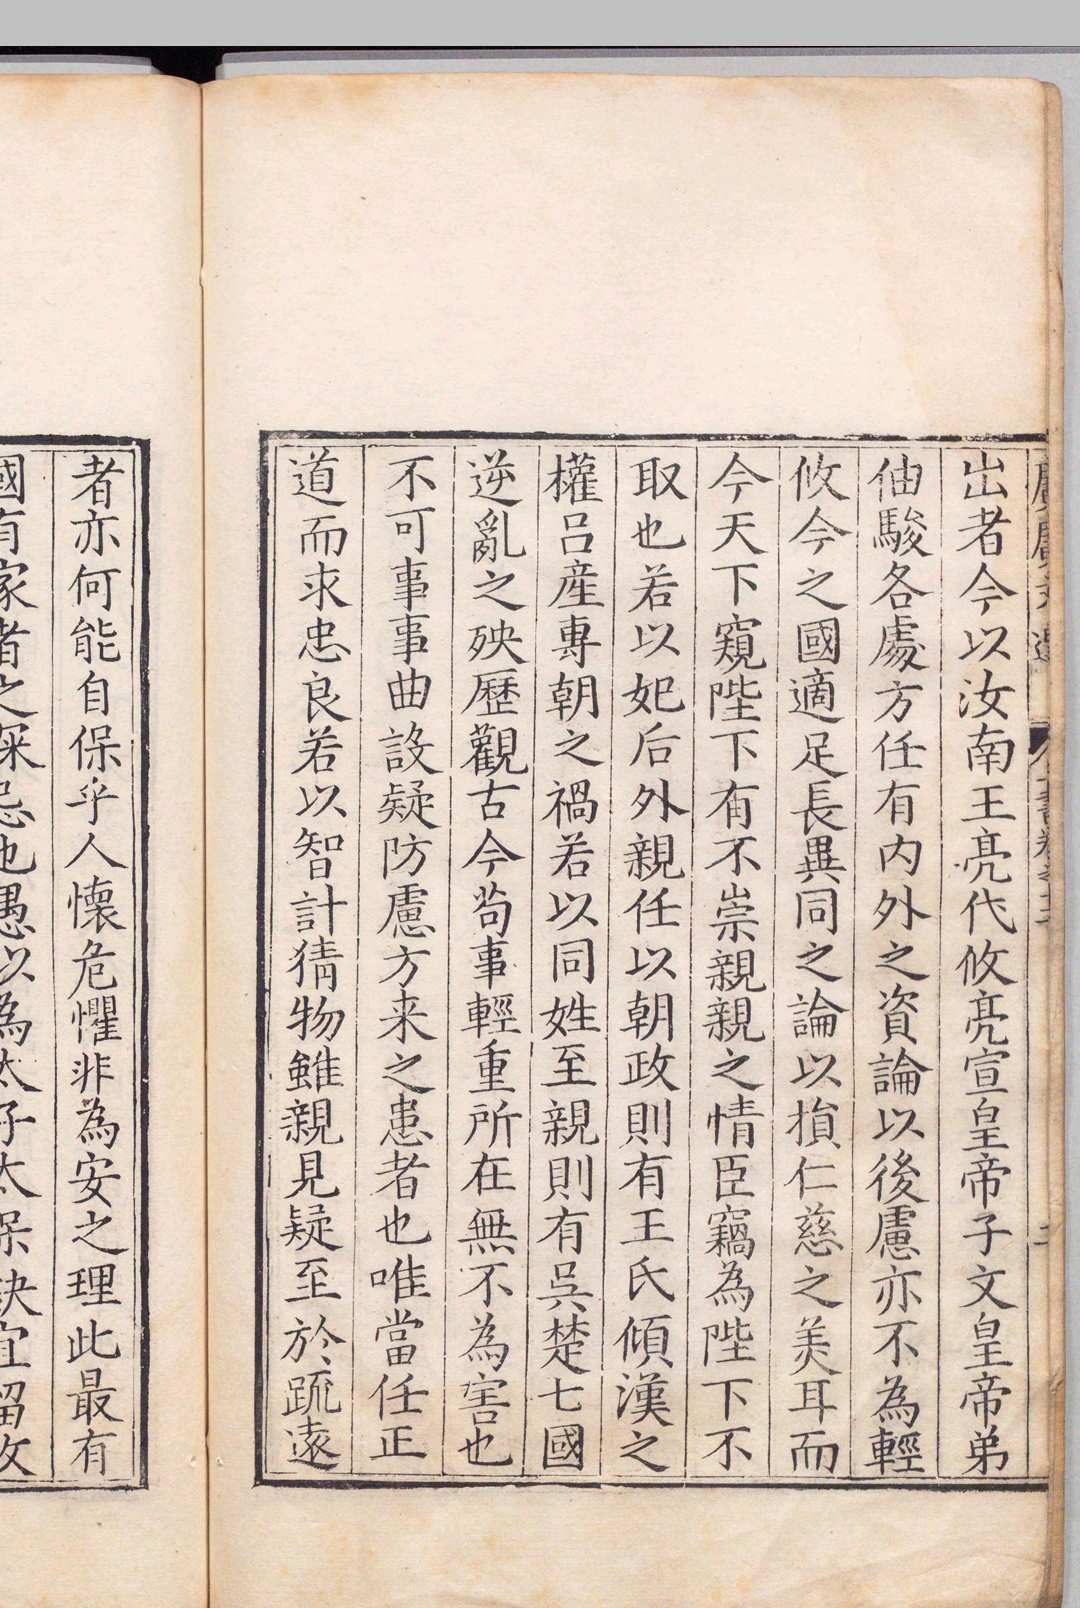 出者今以汝南王亮代攸亮宣皇帝子文皇帝弟
伷駿各處方任有内外之資論以後慮亦不為輕
攸今之國適足長異同之論以損仁慈之美耳而
今天下窺陛下有不崇親親之情臣竊為陛下不
取也若以妃后外親任以朝政則有王氏傾漢之
權呂産專朝之禍若以同姓至親則有吳楚七國
逆亂之殃歷觀古今苟事輕重所在無不為害也
不可事事曲設疑防慮方来之患者也唯當任正
道而求忠良若以智計猜物雖親見疑至於疏遠
者亦何能自保乎人懷危懼非為安之理此最有
國有家者之深忌也愚以為太子太保缺宜留攸